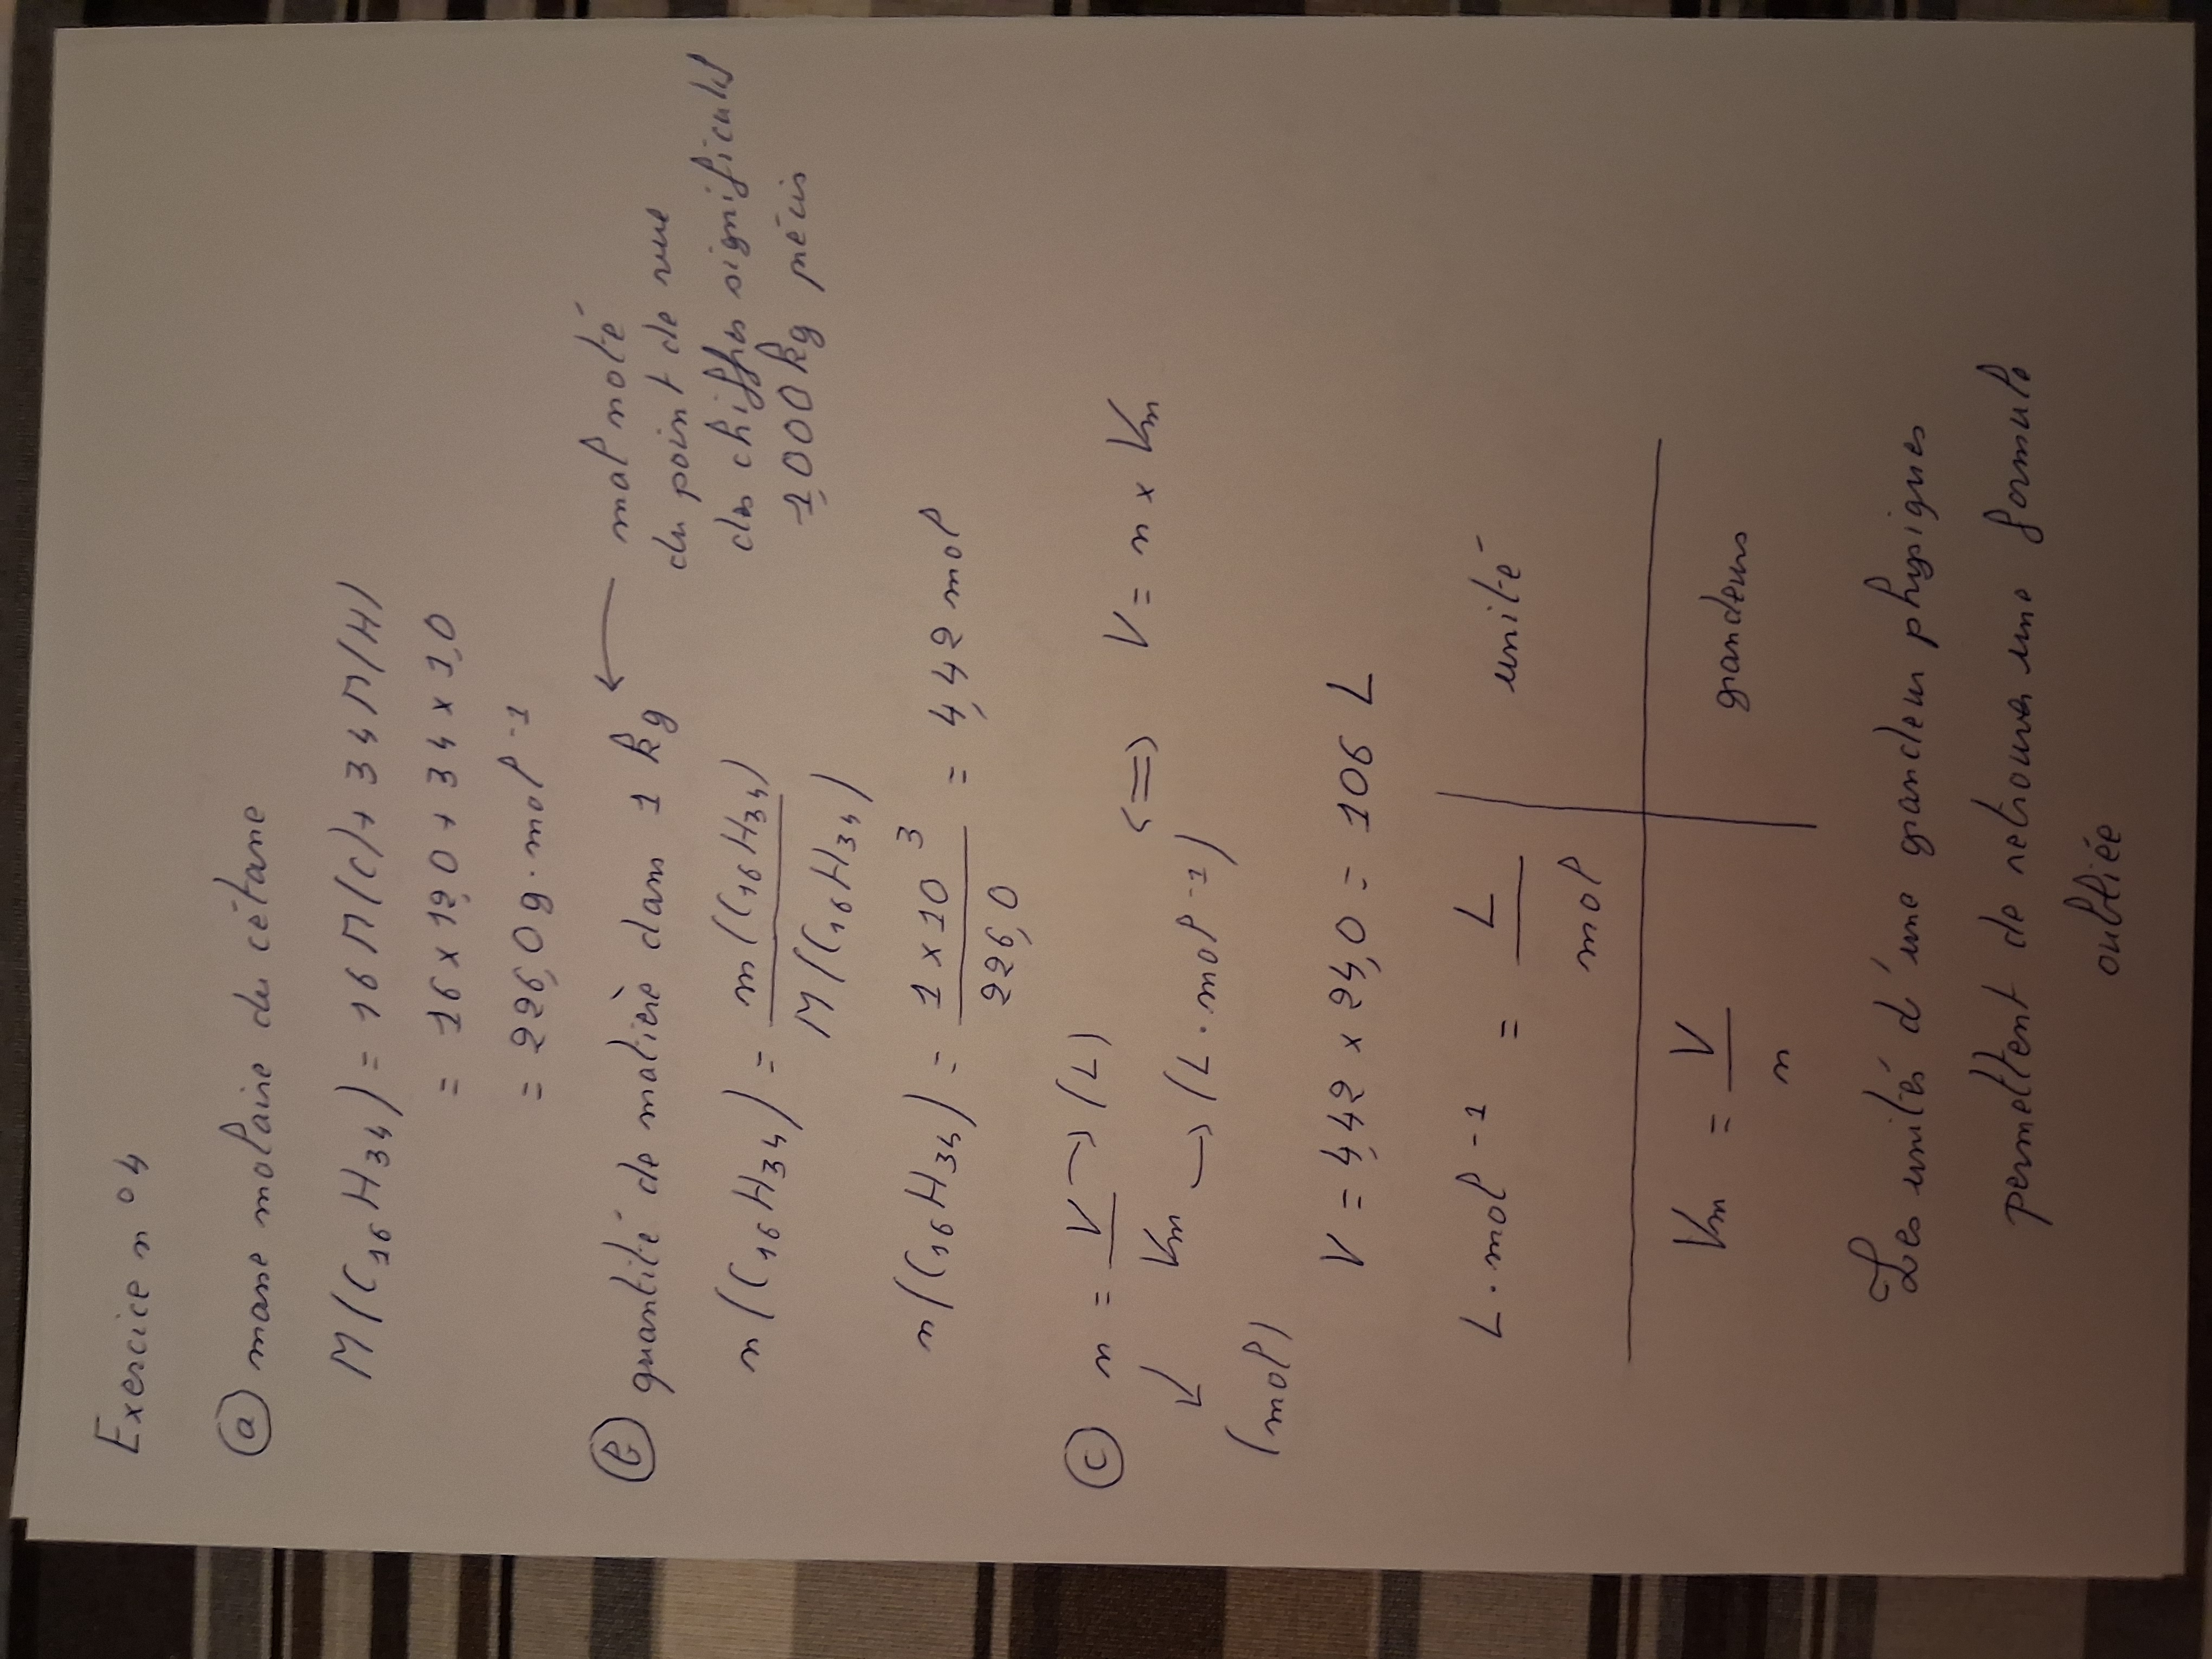 Exercice n°4
(a) masse molaire du cétane
M(C₁₆H₃₄) = 16 M(C) + 34 M(H)
= 16 x 12,0 + 34 x 1,0
= 226,0 g·mol⁻¹
(b) quantité de matière dans 1 kg ← mal noté
du point de vue
des chiffres significatifs
1,000 kg précis
n(C₁₆H₃₄) = m(C₁₆H₃₄) / M(C₁₆H₃₄)
n(C₁₆H₃₄) = 1 x 10³ / 226,0 = 4,42 mol
(c) n = V / Vm <=> V = n x Vm
→ (L)
→ (L·mol⁻¹)
(mol)
V = 4,42 x 24,0 = 106 L
L·mol⁻¹ = L / mol | unité
Vm = V / n | grandeurs
Les unités d'une grandeur physiques
permettent de retrouver une formule
oubliée